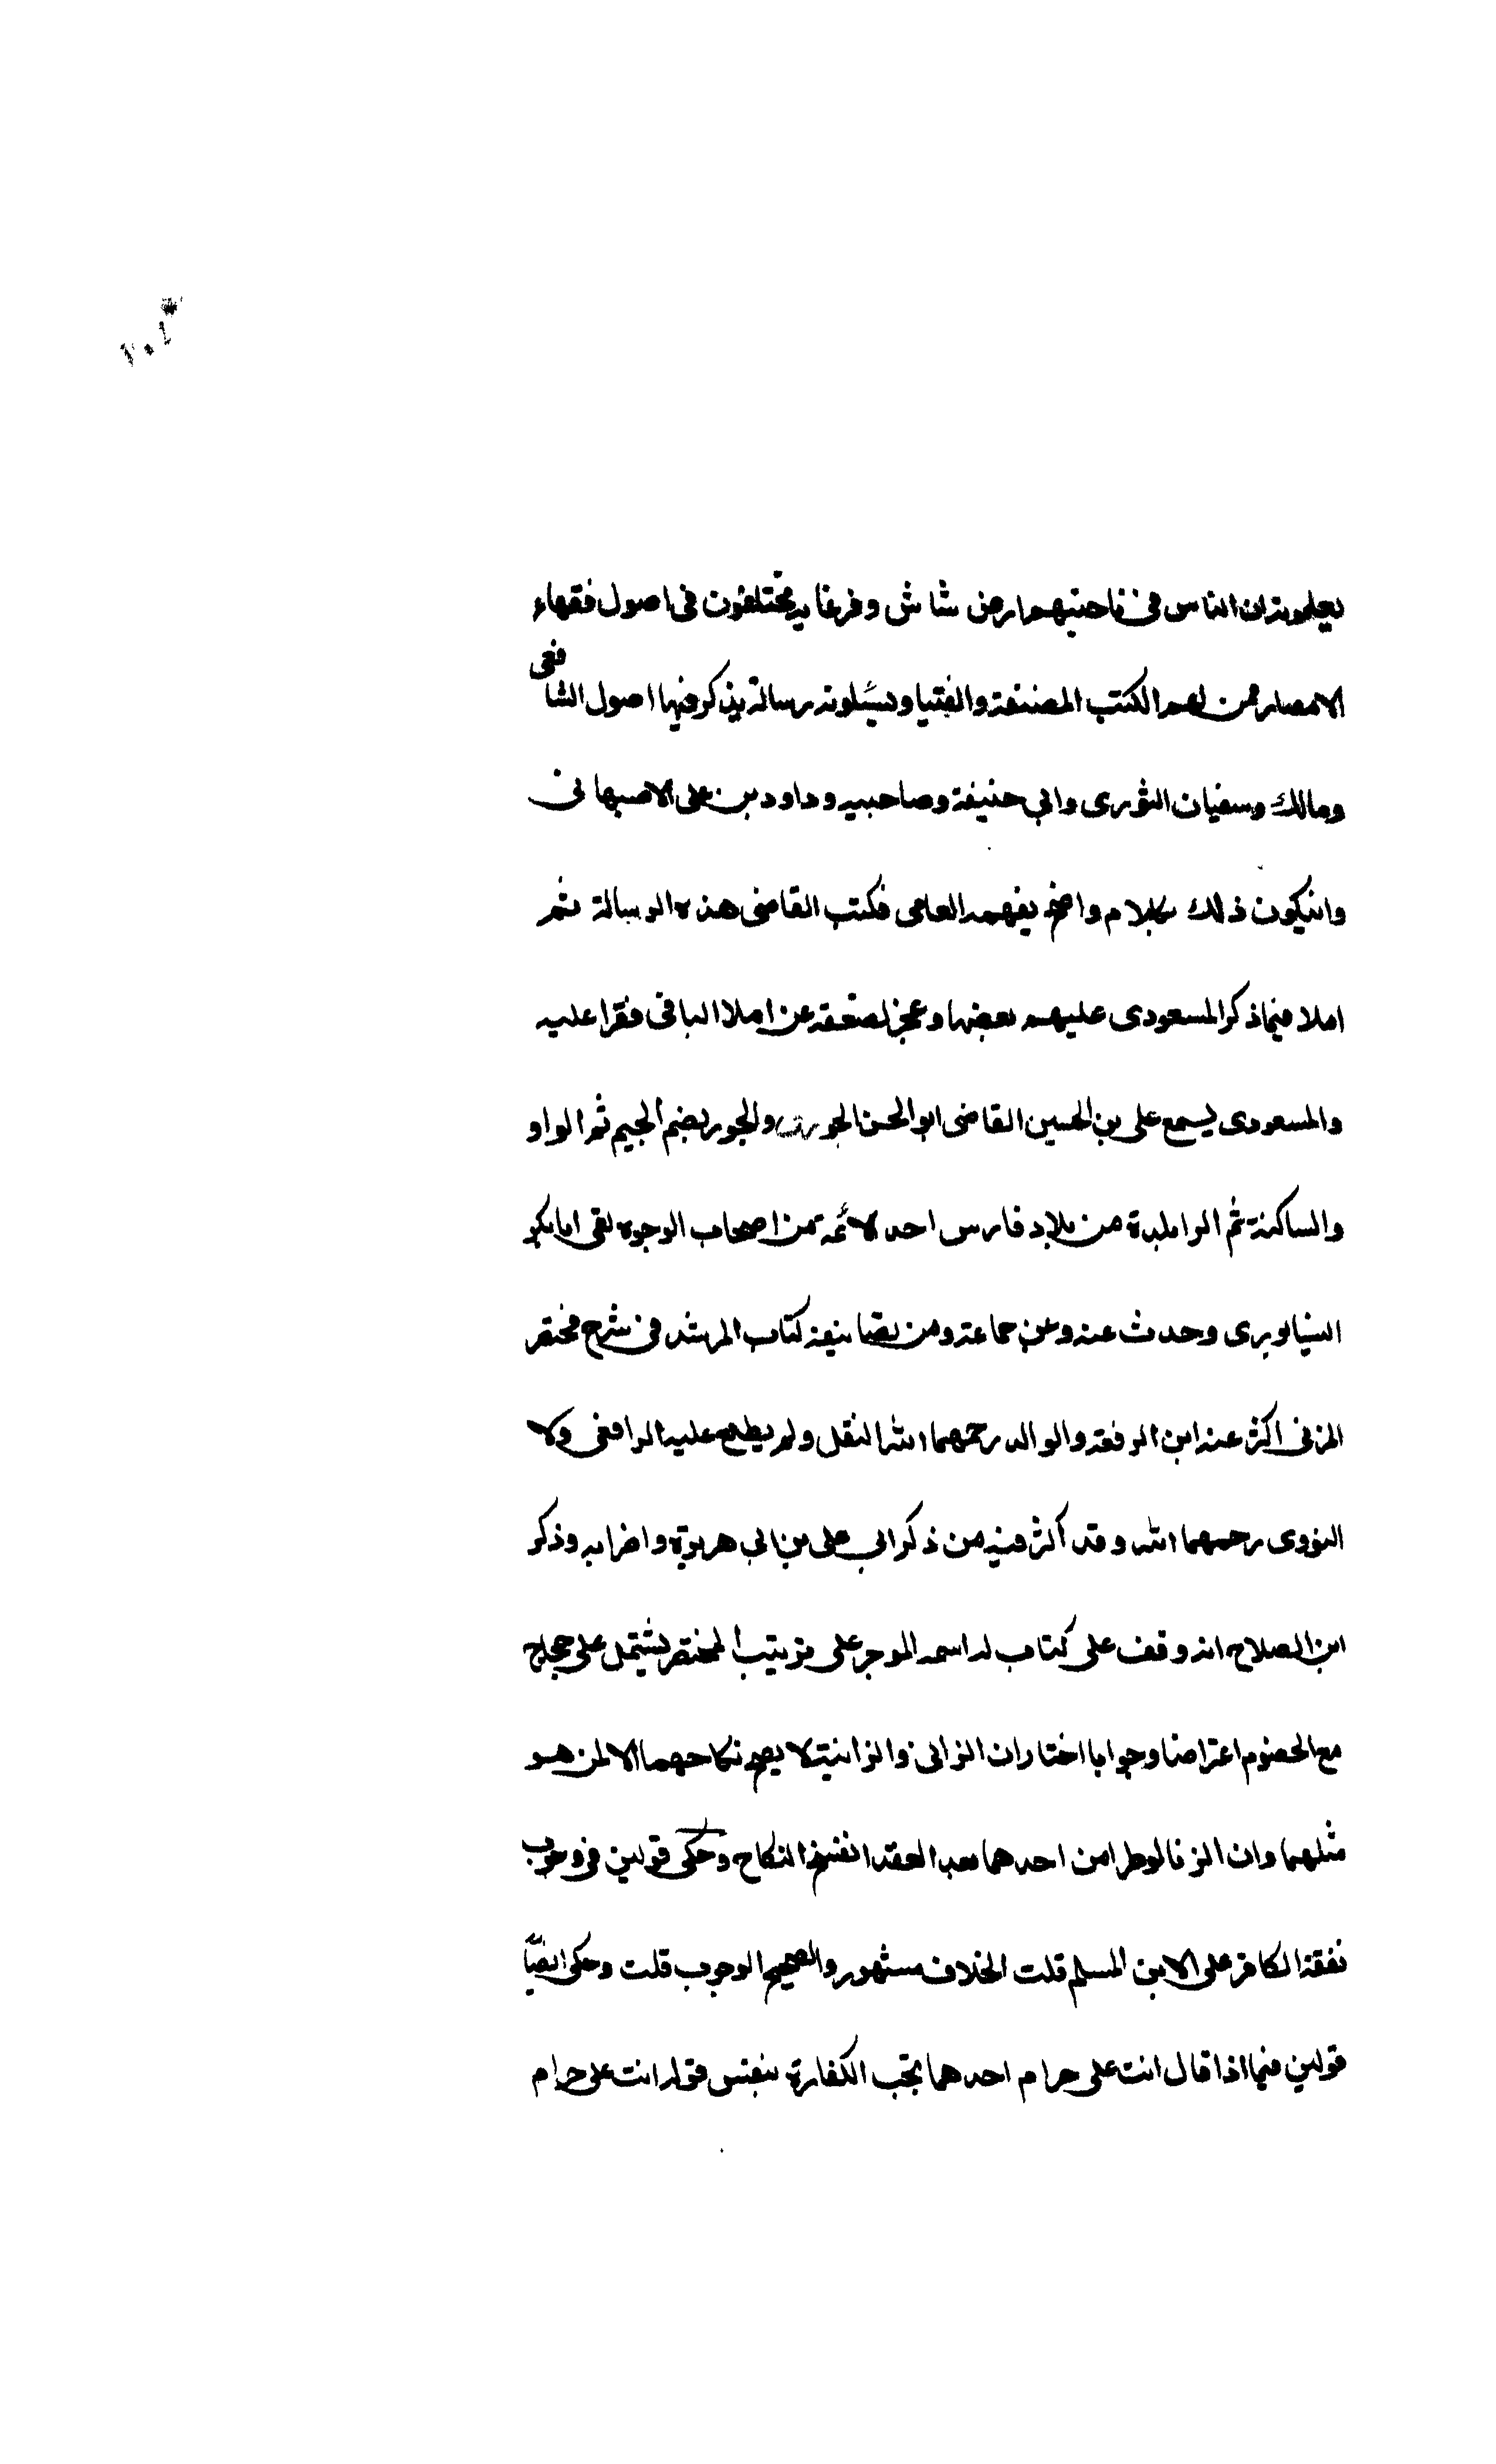 يعلمونه ان الناس في ناحيتهم ارض شاش وفرغانه مختلفون في اصول فقهاء
الامصار ممن لهم الكتب المصنفة والفتيا ويسئلونه رسالة يذكر فيها اصول الشافعي
ومالك وسفيان الثوري وابي حنيفة وصاحبيه وداود بن على الاصبهاني
وان يكون ذلك بكلام واضح يفهمه العامي فكتب القاضي هذه الرسالة ثم
املا فيما ذكر المسعودي عليهم بعضها وعجز لضعفه عن املا الباقي فقرا عليه
والمسعودي يسمع على بن الحسين القاضي ابو الحسن الجوري والجور بضم الجيم ثم الواو
والساكنة ثم الرا بلدة من بلاد فارس احد الائمة من اصحاب الوجوه لقى ابا بكر
النيسابوري وحدث عنه وعن جماعة ومن تصانيفه كتاب المرشد في شرح مختصر
المزني اكثر عنه ابن الرفعة والوالد رحمهما الله النقل ولم يطلع عليه الرافعي ولا
النووي رحمهما الله وقد اكثر فيه من ذكر ابي على بن ابي هريرة واضرابه وذكر
ابن الصلاح انه وقف على كتاب له اسمه الموجز على ترتيب المختصر يشتمل على حجاج
مع الخصوم اعتراضا وجوابا اختار ان الزاني والزانية لا يصح نكاحهما الا لمن هو
مثلهما وان الزنا لو طرا من احدهما بعد العقد انفسخ النكاح وحكى قولين في وجوب
نفقة الكافر على الابن المسلم قلت الخلاف مشهور والصحيح الوجوب قلت وحكى ايضًا
قولين فيما اذا قال انت على حرام احدهما تجب الكفارة بنفس قوله انت على حرام